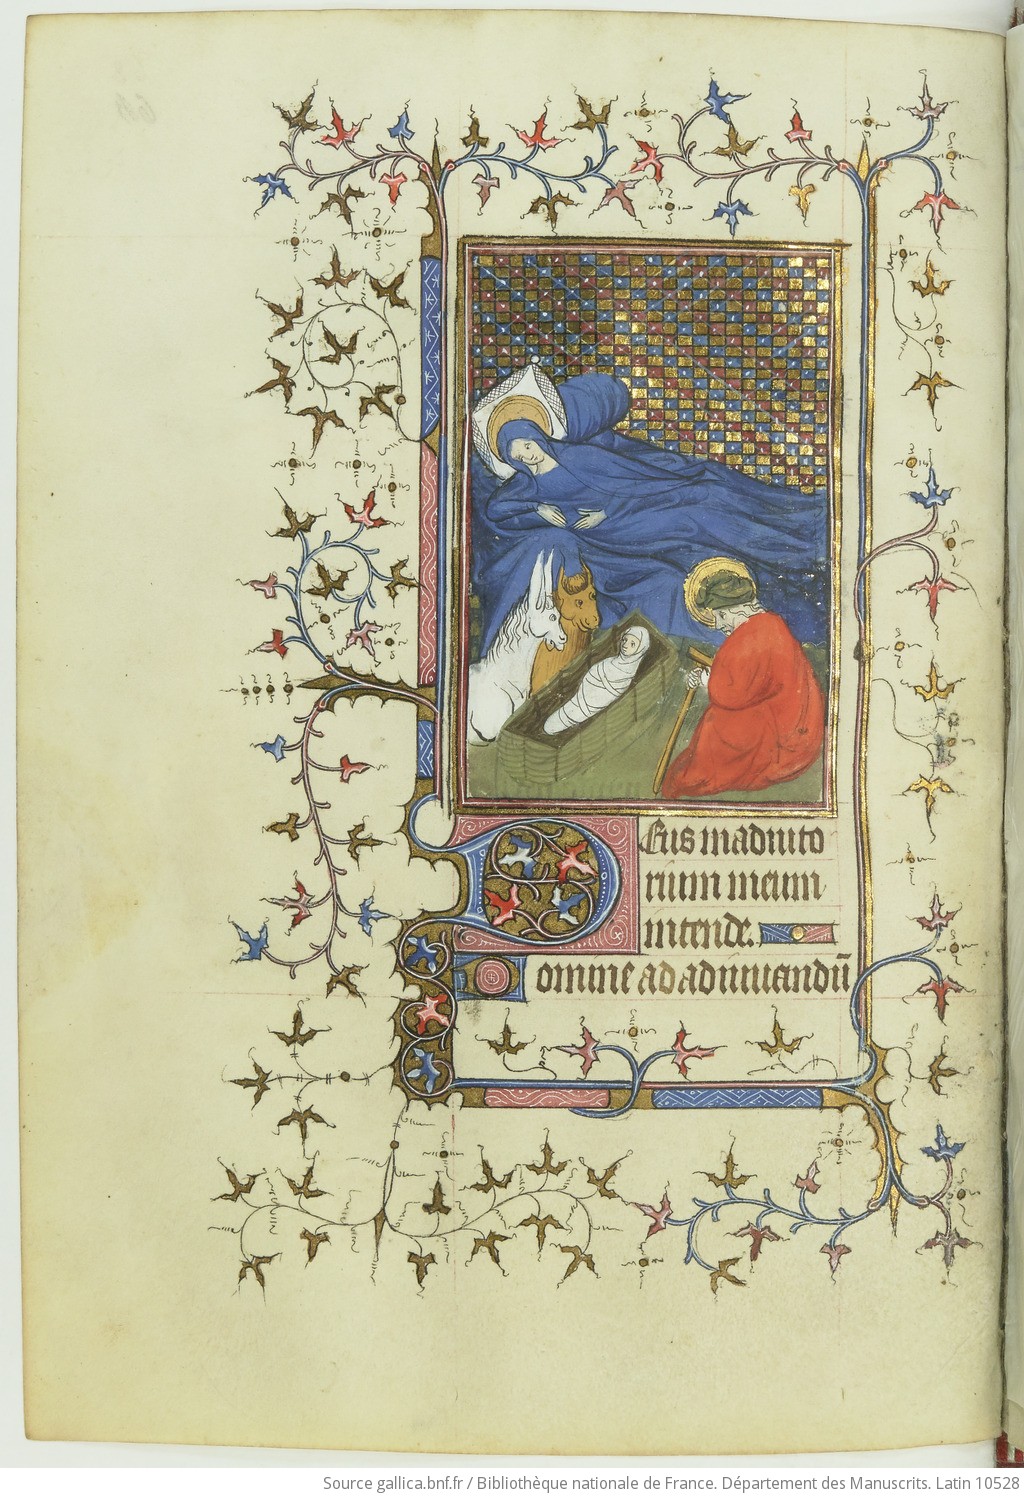 Deus in adiuto
rium meum
intende.
Domine ad adiuuandū
Source gallica.bnf.fr / Bibliothèque nationale de France. Département des Manuscrits. Latin 10528